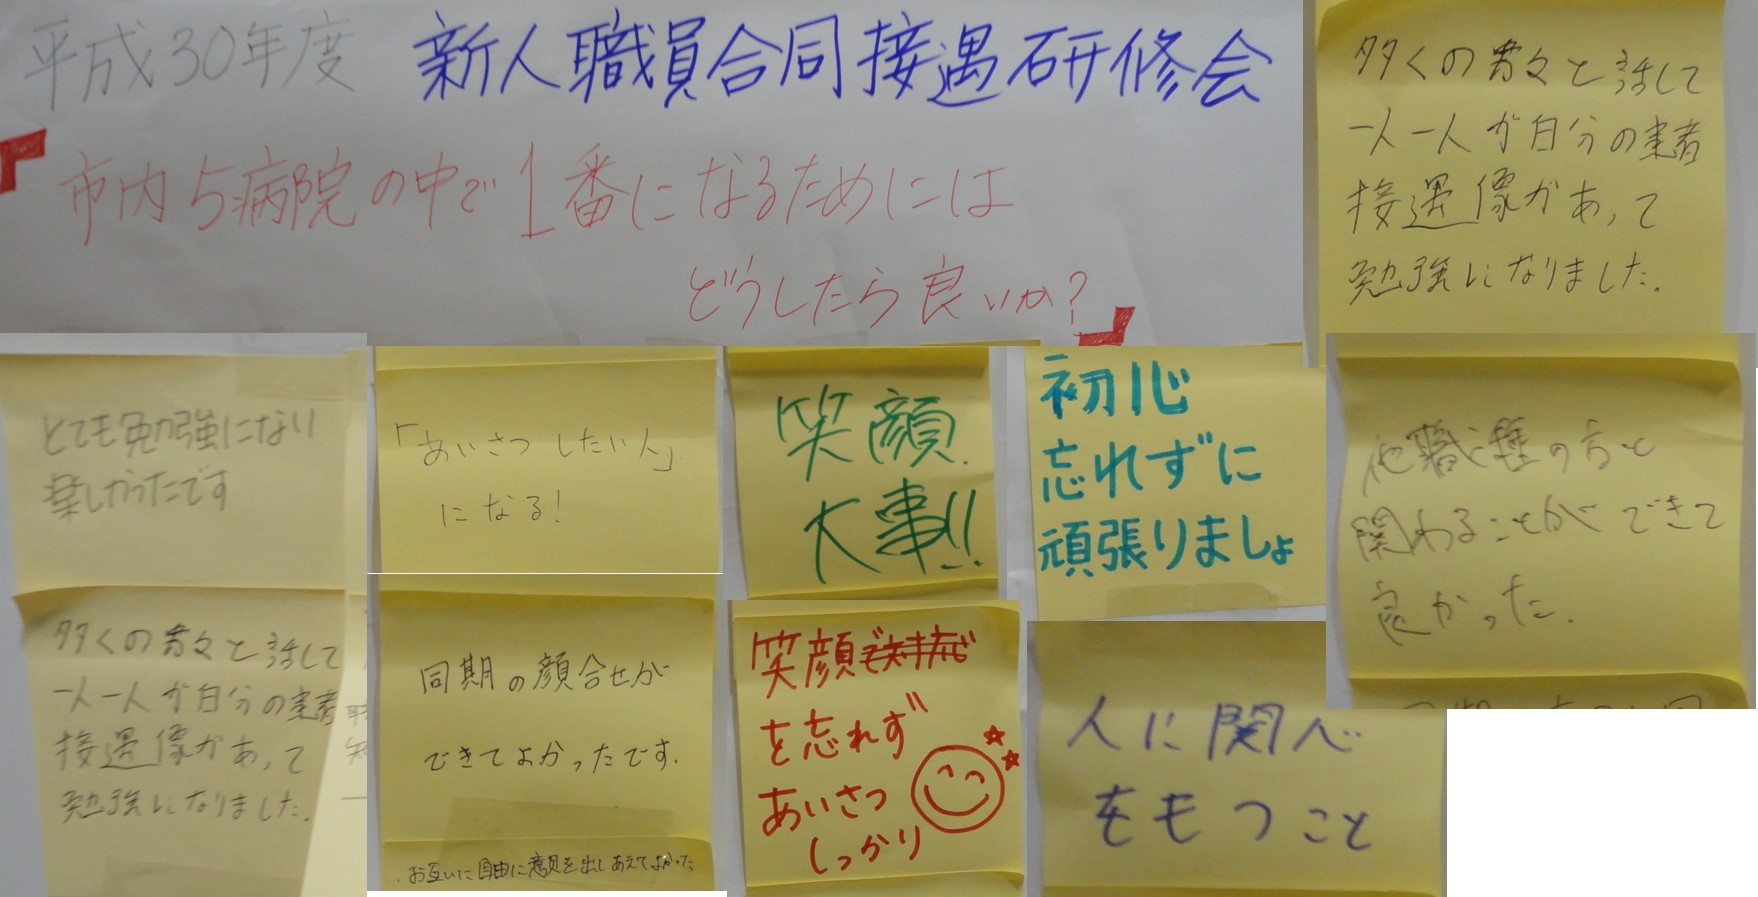 平成30年度 新人職員合同接遇研修会
「市内5病院の中で1番になるためには
どうしたら良いか?」
多くの方々と話して
一人一人が自分の患者
接遇像があって
勉強になりました。
とても勉強になり
楽しかったです
「あいさつ したい人」
になる!
笑顔
大事!!
初心
忘れずに
頑張りましょ
他職種の方と
関わることができて
良かった。
多くの方々と話して
一人一人が自分の患者
接遇像があって
勉強になりました。
同期の顔合せが
できてよかったです.
.お互いに自由に意見を出しあえてよかった
笑顔
を忘れず
あいさつ
しっかり
人に関心
をもつこと